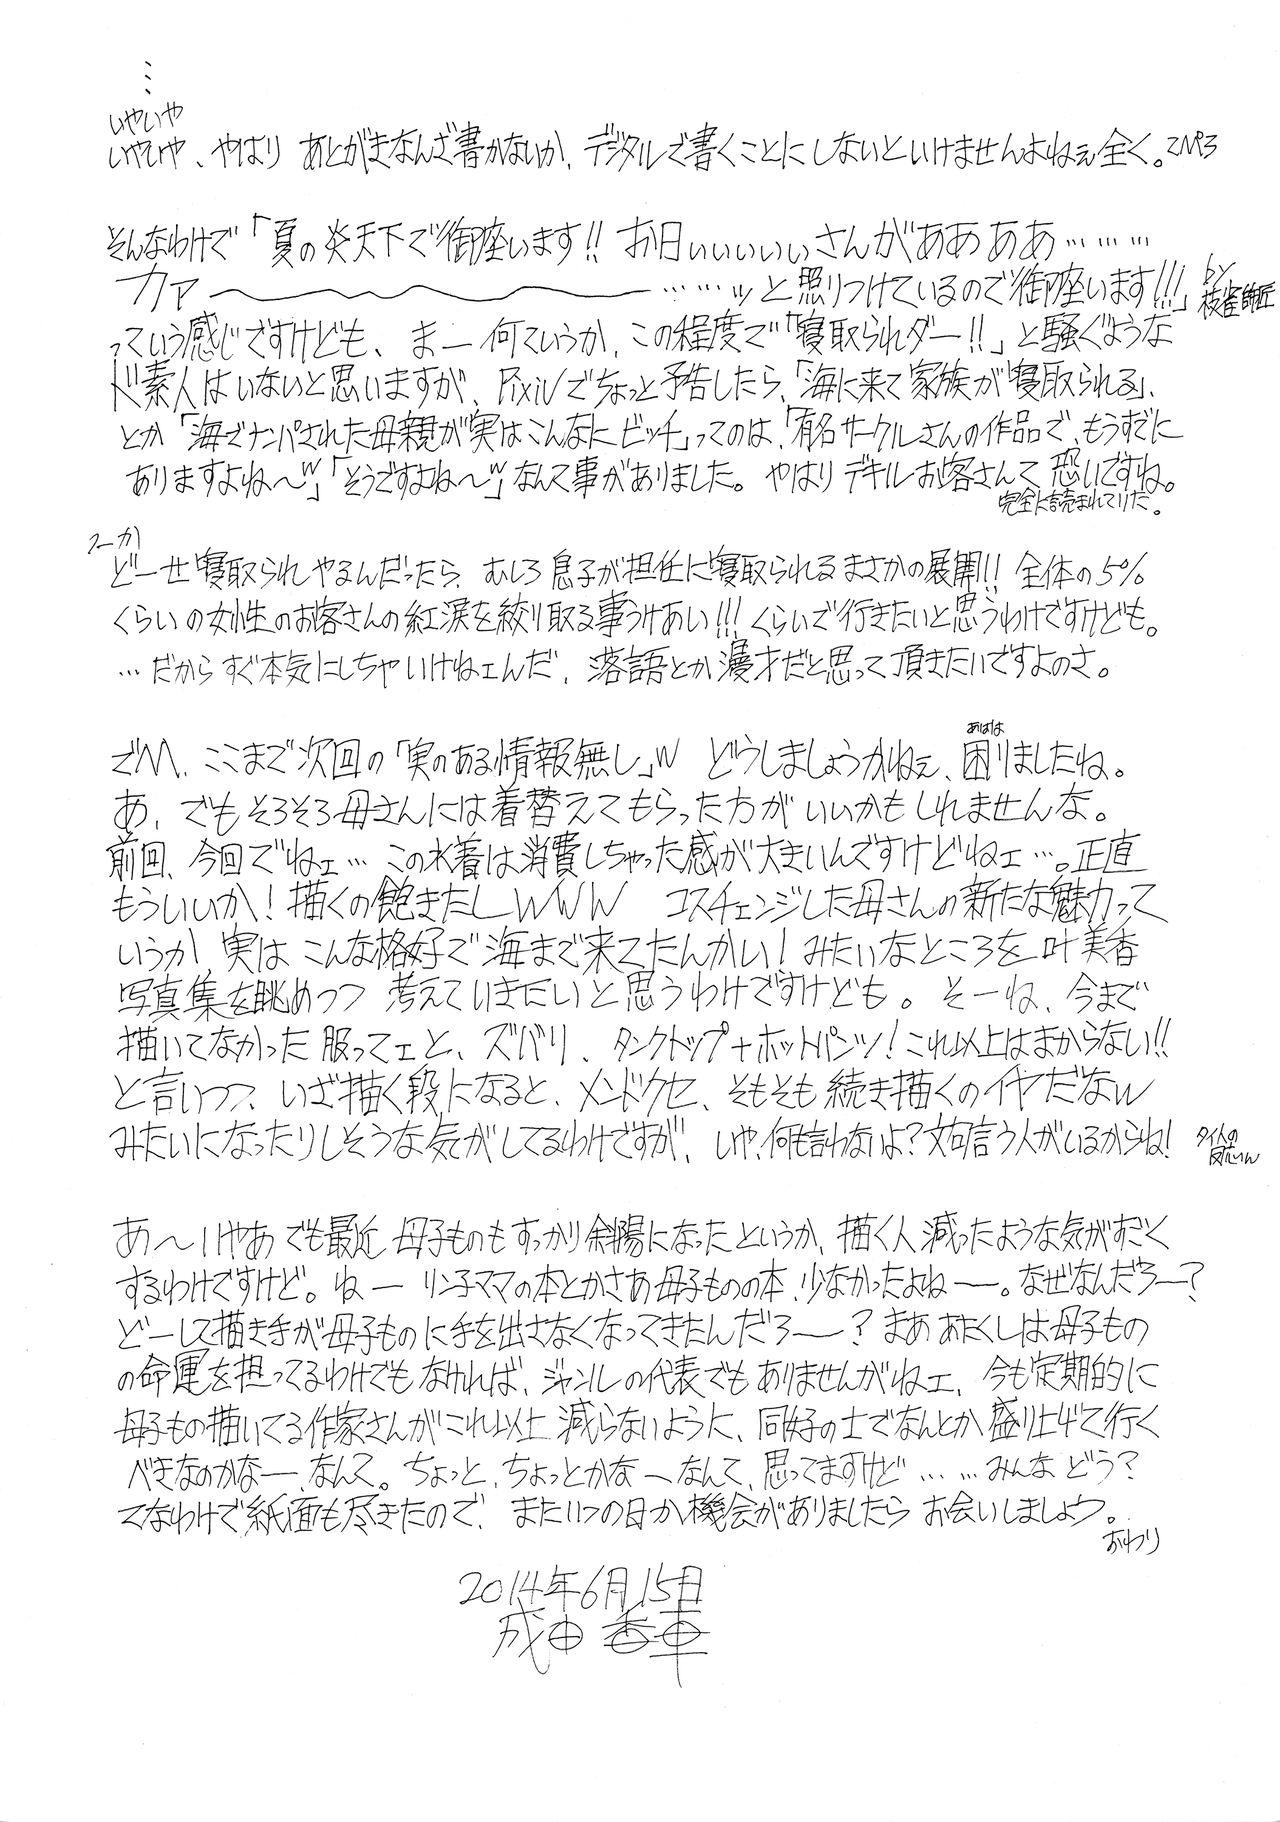 …
いやいや
いやいや、やはり あとがきなんざ書かないか、デジタルで書くことにしないといけませんよねぇ全く。
そんなわけで「夏の炎天下で御座います!! お日ぃぃぃぃぃさんがああああ………
カァ〜〜〜……ッと照りつけているので御座います!!!」by枝雀師匠
っていう感じですけども、まー何ていうか、この程度で「寝取られダー!!」と騒ぐような
ド素人はいないと思いますが、Pixivでちょっと予告したら、「海に来て家族が寝取られる」、
とか「海でナンパされた母親が実はこんなにビッチ」ってのは、「有名サークルさんの作品で、もうすでに
ありますよね〜w」「そうですよね〜w」なんて事がありました。やはりデキルお客さんて恐いですね。
完全に読まれてりだ。
つーか
どーせ寝取られやるんだったら、むしろ息子が担任に寝取られるまさかの展開!! 全体の5%
くらいの女性のお客さんの紅涙を絞り取る事うけあい!!! くらいで行きたいと思うわけですけども。
…だからすぐ本気にしちゃいけねェんだ、落語とか漫才だと思って頂きたいですよのさ。
でM、ここまで次回の「実のある情報無し」w どうしましょうかねぇ、困りましたね。
あはは
あ、でもそろそろ母さんには着替えてもらった方がいいかもしれませんな。
前回、今回でねェ…この水着は消費しちゃった感が大きいんですけどねェ…。正直
もういいか！描くの飽きたしwww コスチェンジした母さんの新たな魅力って
いうか、実はこんな格好で海まで来てたんかい！みたいなところを叶美香
写真集を眺めつつ 考えていきたいと思うわけですけども。そーね、今まで
描いてなかった服ってェと、ズバリ、タンクトップ+ホットパンツ！これ以上はまからない!!
と言いつつ、いざ描く段になると、メンドクセ、そもそも続き描くのイヤだなw
みたいになったりしそうな気がしてるわけですが、いや、何も言わないよ？文句言う人がいるからね！
あ〜いやあでも最近 母子ものもすっかり斜陽になったというか、描く人減ったような気がすごく
するわけですけど。ねー リン子ママの本とかさあ母子ものの本、少なかったよねー。なぜなんだろー？
どーして描き手が母子ものに手を出さなくなってきたんだろー？まああたくしは母子もの
の命運を担ってるわけでもなければ、ジャンルの代表でもありませんがねェ、今も定期的に
母子もの描いてる作家さんがこれ以上減らないように、同好の士でなんとか盛り上げて行く
べきなのかなー、なんて。ちょっと、ちょっとかなーなんて、思ってますけど……みんなどう？
てなわけで紙面も尽きたので、またいつの日か機会がありましたらお会いしましょう。
おわり
2014年6月15日
成田香車